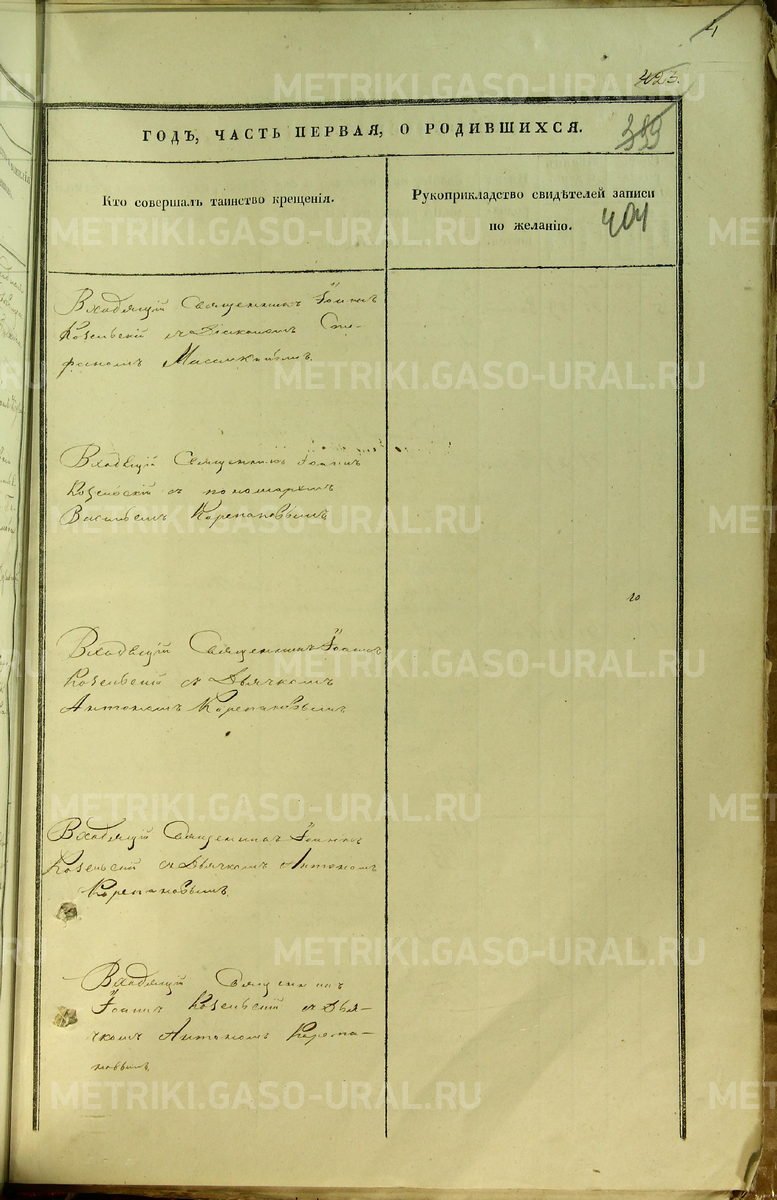 4
423.
ГОДЪ, ЧАСТЬ ПЕРВАЯ, О РОДИВШИХСЯ.
389
Кто совершалъ таинство крещенія.
Рукоприкладство свидѣтелей записи
по желанію.
404
Входящій Священникъ Іоаннъ
Козельскій съ Діакономъ Сте-
фаномъ
Входящій Священникъ Іоаннъ
Козельскій съ пономаремъ
Васильемъ Корепановымъ
Входящій Священникъ Іоаннъ
Козельскій съ Дьячкомъ
Антономъ Корепановымъ
Входящій Священникъ Іоаннъ
Козельскій съ Дьячкомъ Антономъ
Корепановымъ
Входящій Священникъ
Іоаннъ Козельскій съ Дья-
чкомъ Антономъ Корепа-
новымъ
METRIKI.GASO-URAL.RU